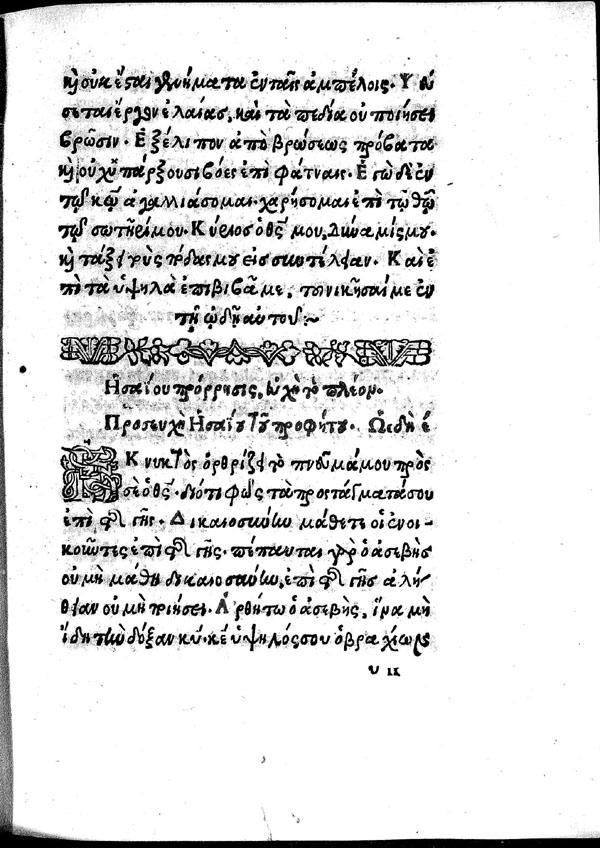 καὶ οὐκ ἔσται γεννήματα ἐν ταῖς ἀμπέλοις. Ψεύ
σεται ἔργον ἐλαίας, καὶ τὰ πεδία οὐ ποιήσει
βρῶσιν. Ἐξέλιπον ἀπὸ βρώσεως πρόβατα
καὶ οὐχ ὑπάρξουσι βόες ἐπὶ φάτναις. Ἐγὼ δὲ ἐν
τῷ κῷ ἀγαλλιάσομαι. χαρήσομαι ἐπὶ τῷ θῷ
τῷ σωτῆρί μου. Κύριος ὁ θς μου, δύναμίς μου.
καὶ τάξει τοὺς πόδας μου εἰς συντέλειαν. Καὶ ἐ
πὶ τὰ ὑψηλὰ ἐπιβιβᾷ με, τοῦ νικῆσαί με ἐν
τῇ ᾠδῇ αὐτοῦ :~
Ἡσαΐου πρόρρησις, εὐχὴ τὸ πλέον.
Προσευχὴ Ἡσαΐου τοῦ προφήτου. Ὠιδὴ έ
Ἐκ νυκτὸς ὀρθρίζει τὸ πνεῦμά μου πρὸς
σὲ ὁ θς. διότι φῶς τὰ προστάγματά σου
ἐπὶ τῆς γῆς. Δικαιοσύνην μάθετε οἱ ἐνοι-
κοῦντες ἐπὶ τῆς γῆς. πέπαυται γὰρ ὁ ἀσεβὴς
οὐ μὴ μάθῃ δικαιοσύνην, ἐπὶ τῆς γῆς ἀλή-
θειαν οὐ μὴ ποιήσει. Ἀρθήτω ὁ ἀσεβὴς, ἵνα μὴ
ἴδῃ τὴν δόξαν κυ. κε ὑψηλός σου ὁ βραχίων
υ ιι